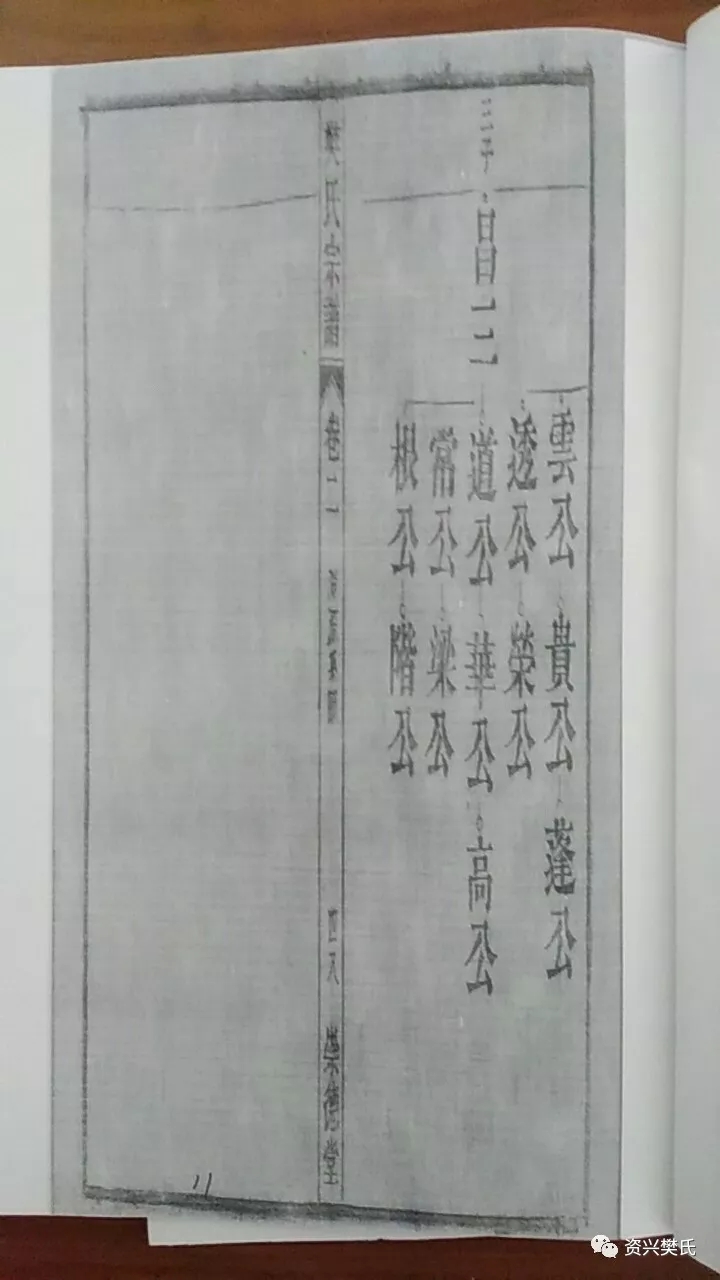 三子
昌三
雲公 貴公 蓬公
透公 榮公
道公 華公 高公
常公 梁公
根公 階公
樊氏宗譜 卷二 四八 崇德堂
11
资兴樊氏